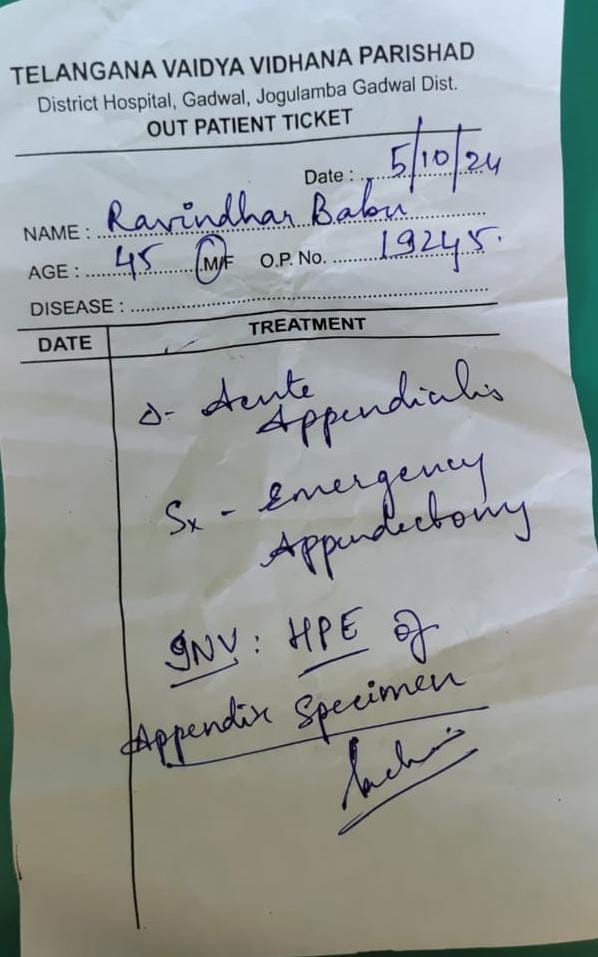 TELANGANA VAIDYA VIDHANA PARISHAD
District Hospital, Gadwal, Jogulamba Gadwal Dist.
OUT PATIENT TICKET
Date : 5/10/24
NAME : Ravindhar Babu
AGE : 45 M/F O.P. No. 19245.
DISEASE :
DATE TREATMENT
Δ- Acute
Appendicitis
Sx - Emergency
Appendectomy
INV : HPE of
Appendix Specimen